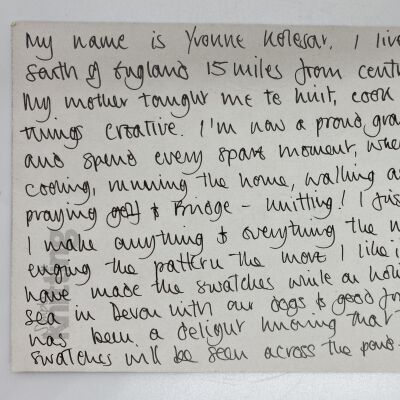 My name is Yvonne Kolesar. I live
South of England 15 miles from cent
My mother taught me to knit, cook
things creative. I'm now a proud gra
and spend every spare moment, whe
cooking, running the home, walking a
praying golf & Bridge - knitting! I jus
I make anything & everything the m
enging the pattern the more I like i
have made the swatches while on holi
sea in Devon with our dogs & good fr
has been a delight knowing that
swatches will be seen across the pond.
knitting